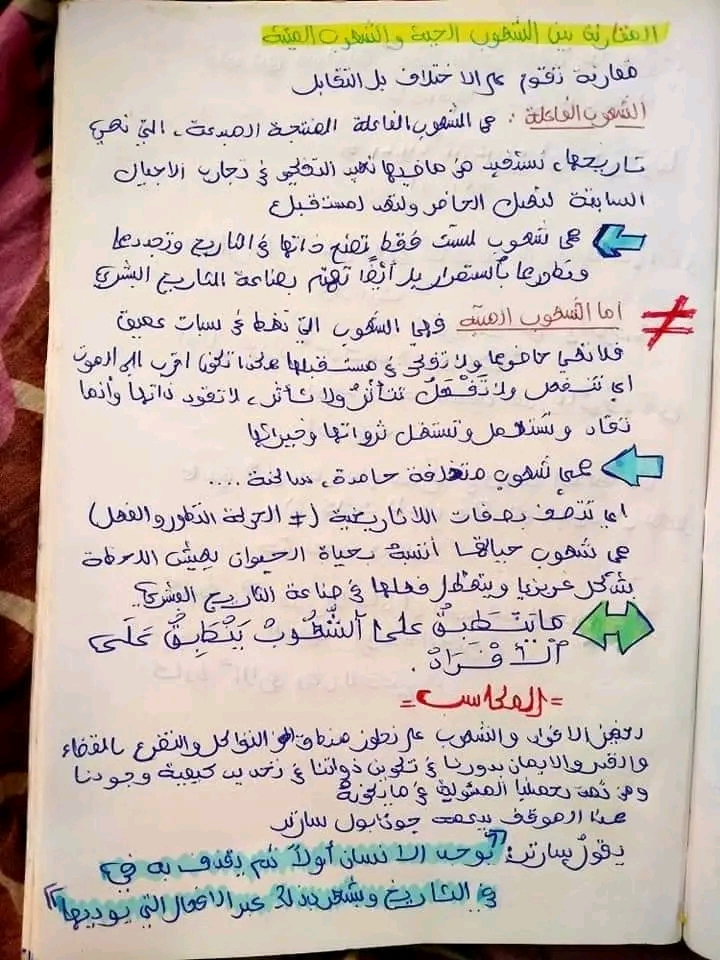 المقارنة بين الشعوب الحية والشعوب الميتة
مقارنة تقوم على الاختلاف بل التقابل
الشعوب الفاعلة : هي الشعوب الفاعلة المنتجة المبدعة، التي تعي
تاريخها، تستفيد من ماضيها تعيد التفكير في تجارب الاجيال
السابقة لتفعل الحاضر ولتعد لمستقبل
هي شعوب ليست فقط تصنع ذاتها في التاريخ وتجددها
وتطورها بالستمرار بل أيضًا تهتم بصناعة التاريخ البشري
≠ اما الشعوب الميتة فهي الشعوب التي تغط في سبات عميق
فلا تعي حاضرها ولا تفكر في مستقبلها هكذا تكون اقرب الى الموت
اي تنفعل ولا تَفْعَلُ تتأثرُ ولا تأثر، لا تقود ذاتها وأنما
تقاد وتستعمل وتستغل ثرواتها وخيراتها
هي شعوب متخلفة جامدة، ساكنة ....
اي تتصف بصفات اللاتاريخية (≠ الحركة التطور والفعل)
هي شعوب حياتها أشبه بحياة الحيوان يعيش اللحظة
بشكل غريزي ويتعطل فعلها في صناعة التاريخ البشري.
ما يَنْطَبِقُ على الشُّعُوبْ يَنْطَبِقُ عَلَى
الْأَفْرَادْ .
=المكاسب=
تحفيز الافراد والشعوب على تجاوز منطق التواكل والتضرع بالقضاء
والقدر والايمان بدورنا في تكوين ذواتنا في تحديد كيفية وجودنا
ومن ثمة تحملنا المسؤولية في ما نكونهُ
هذا الموقف يدعمه جون بول سارتر
يقول سارتر: "يوجد الانسان أولاً ثم يقذف به في
في التاريخ ويشعر بذلك عبر الافعال التي يوديها"